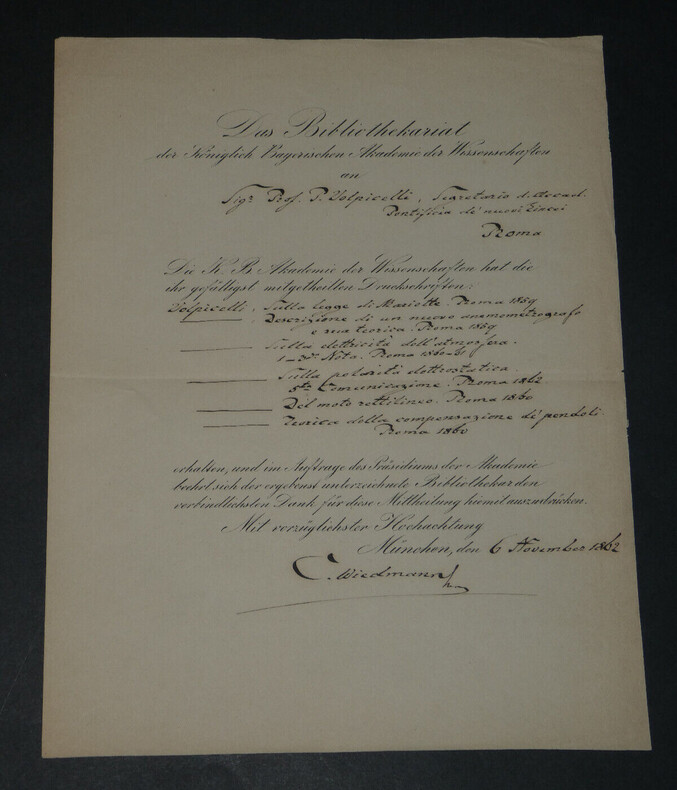 Das Bibliothekariat
der Königlich Bayerischen Akademie der Wissenschaften
an
Sigr Prof. P. Volpicelli, Segretario d. Accad.
Pontificia di nuovi Lincei
Roma
Die K. B. Akademie der Wissenschaften hat die
ihr gefälligst mitgetheilten Druckschriften:
Volpicelli, Sulla legge di Mariotte. Roma 1859
Descrizione di un nuovo anemometrografo
e sua teorica. Roma 1859
Sulla elettricità dell'atmosfera.
1–3za Nota. Roma 1860–61
Sulla polarità elettrostatica.
5ta Comunicazione. Roma 1862
Del moto rettilineo. Roma 1860
Teorica della compensazione de' pendoli.
Roma 1860
erhalten, und im Auftrage des Präsidiums der Akademie
beehrt sich der ergebenst unterzeichnete Bibliothekar den
verbindlichsten Dank für diese Mittheilung hiemit auszudrücken.
Mit vorzüglichster Hochachtung
München, den 6 November 1862
C. Wiedmann